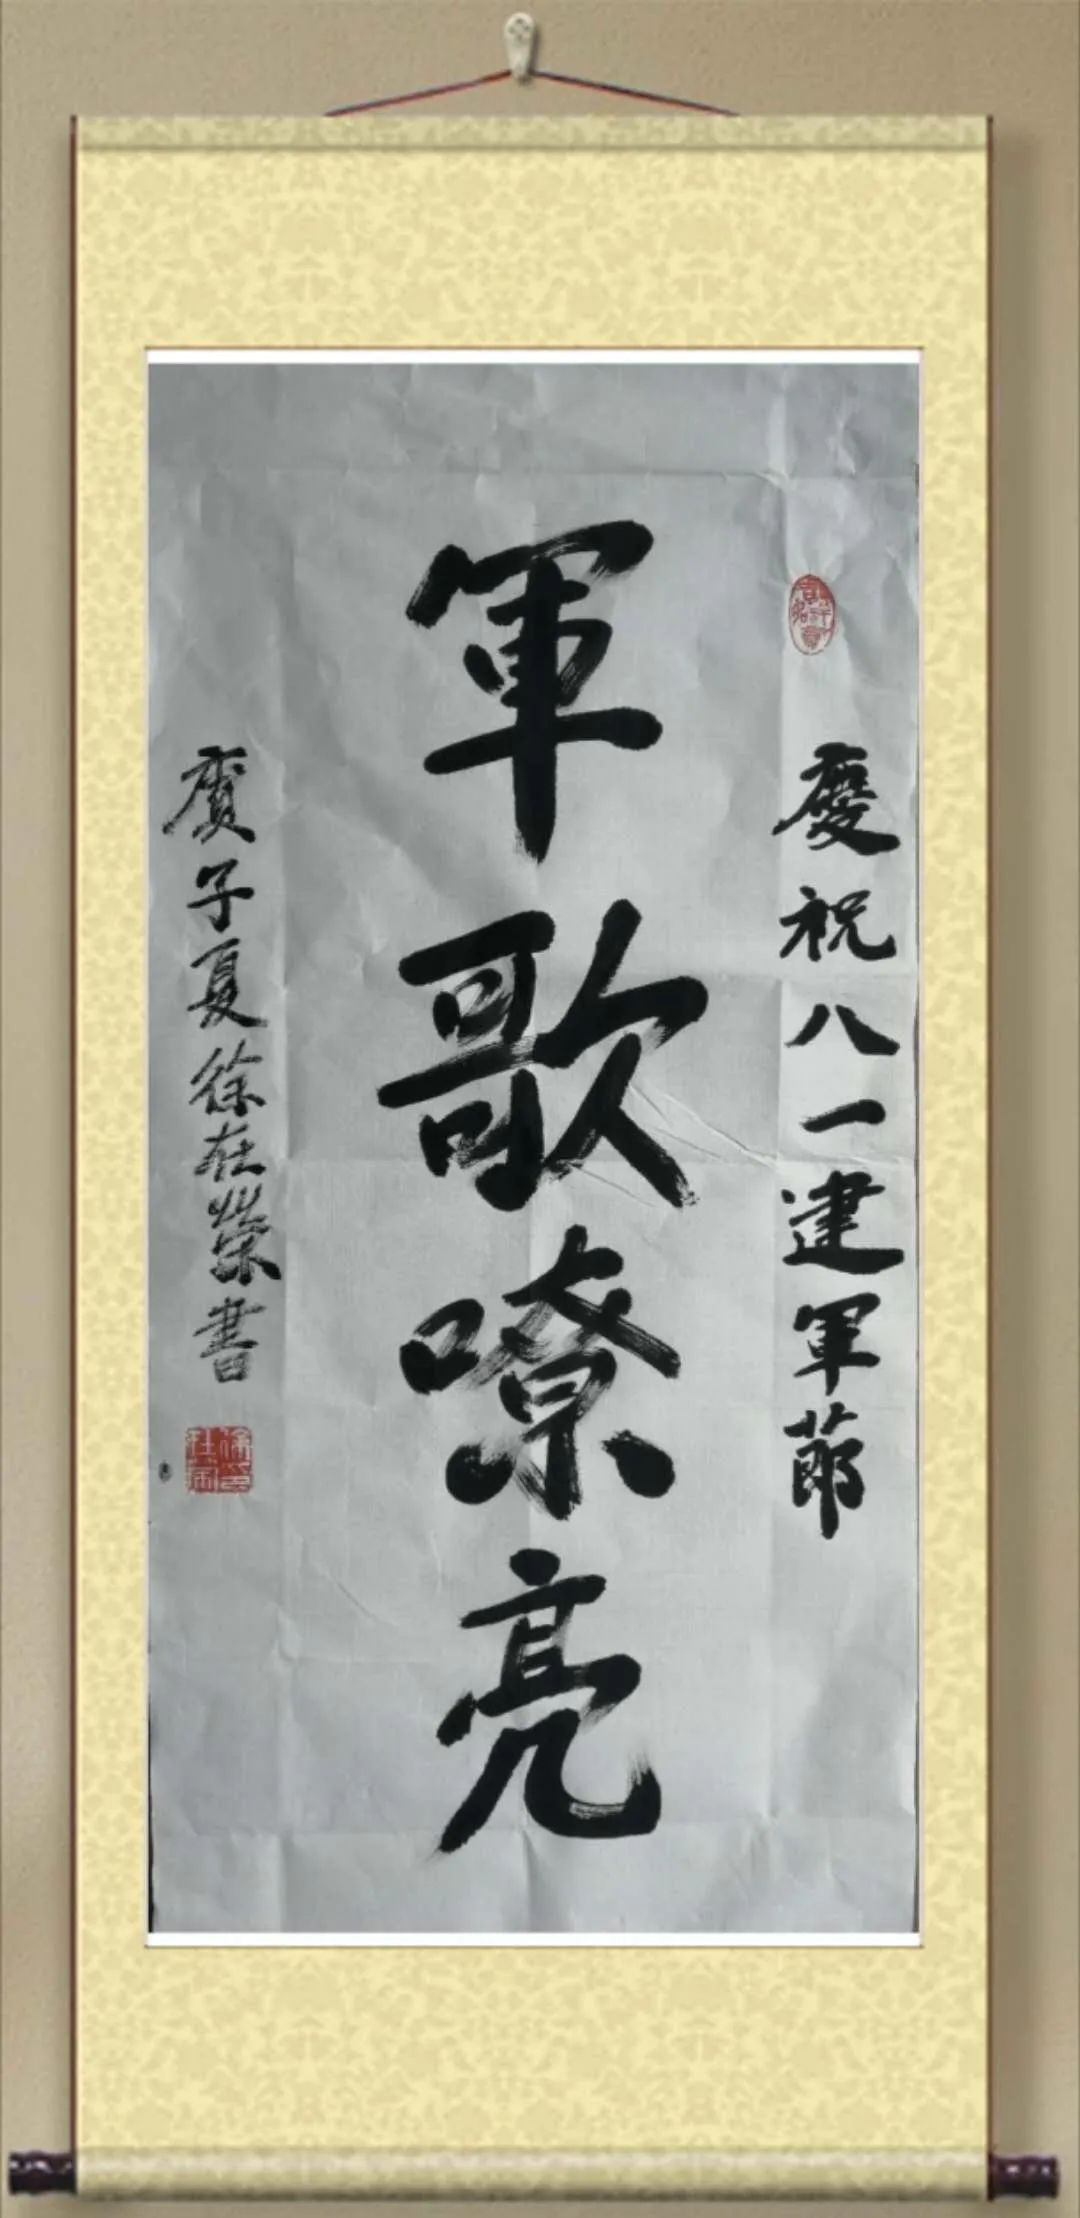 慶祝八一建軍節
軍歌嘹亮
庚子夏徐在榮書